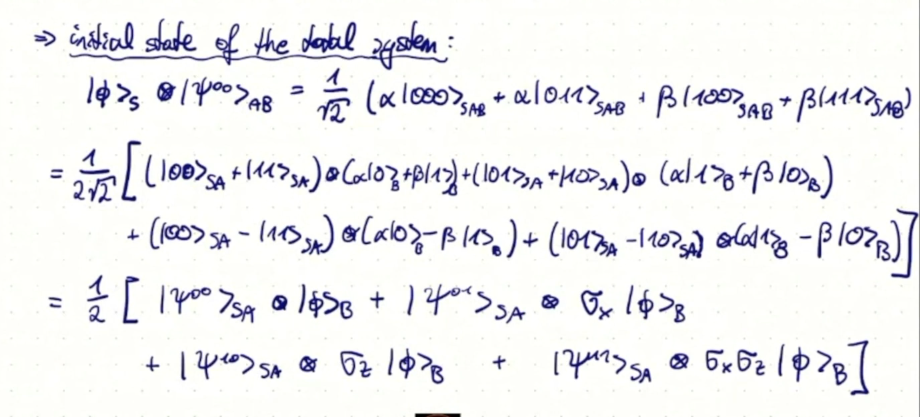 ⇒ initial state of the total system:
|ϕ>_S ⊗ |ψ⁰⁰>_AB = 1/√2 (α|000>_SAB + α|011>_SAB + β|100>_SAB + β|111>_SAB)
= 1/2√2 [(|00>_SA + |11>_SA) ⊗ (α|0>_B + β|1>_B) + (|01>_SA + |10>_SA) ⊗ (α|1>_B + β|0>_B)
+ (|00>_SA − |11>_SA) ⊗ (α|0>_B − β|1>_B) + (|01>_SA − |10>_SA) ⊗ (α|1>_B − β|0>_B)]
= 1/2 [ |ψ⁰⁰>_SA ⊗ |ϕ>_B + |ψ⁰¹>_SA ⊗ σ_x |ϕ>_B
+ |ψ¹⁰>_SA ⊗ σ_z |ϕ>_B + |ψ¹¹>_SA ⊗ σ_x σ_z |ϕ>_B ]